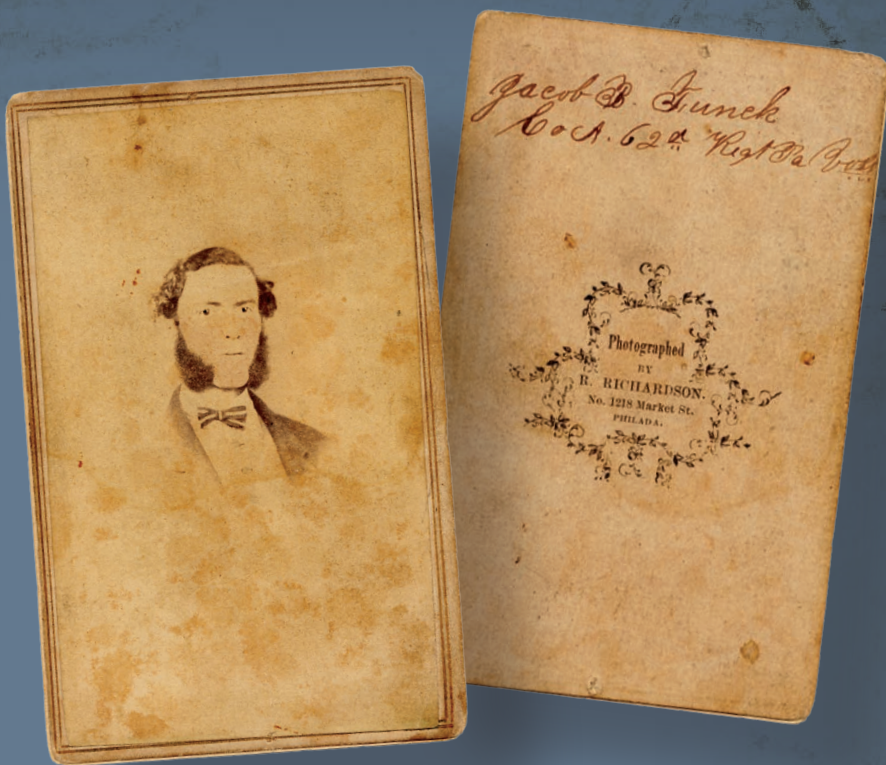 Jacob B. Funck
Co A. 62d Regt Pa Vols
Photographed
BY
R. RICHARDSON.
No. 1218 Market St.
PHILADA.